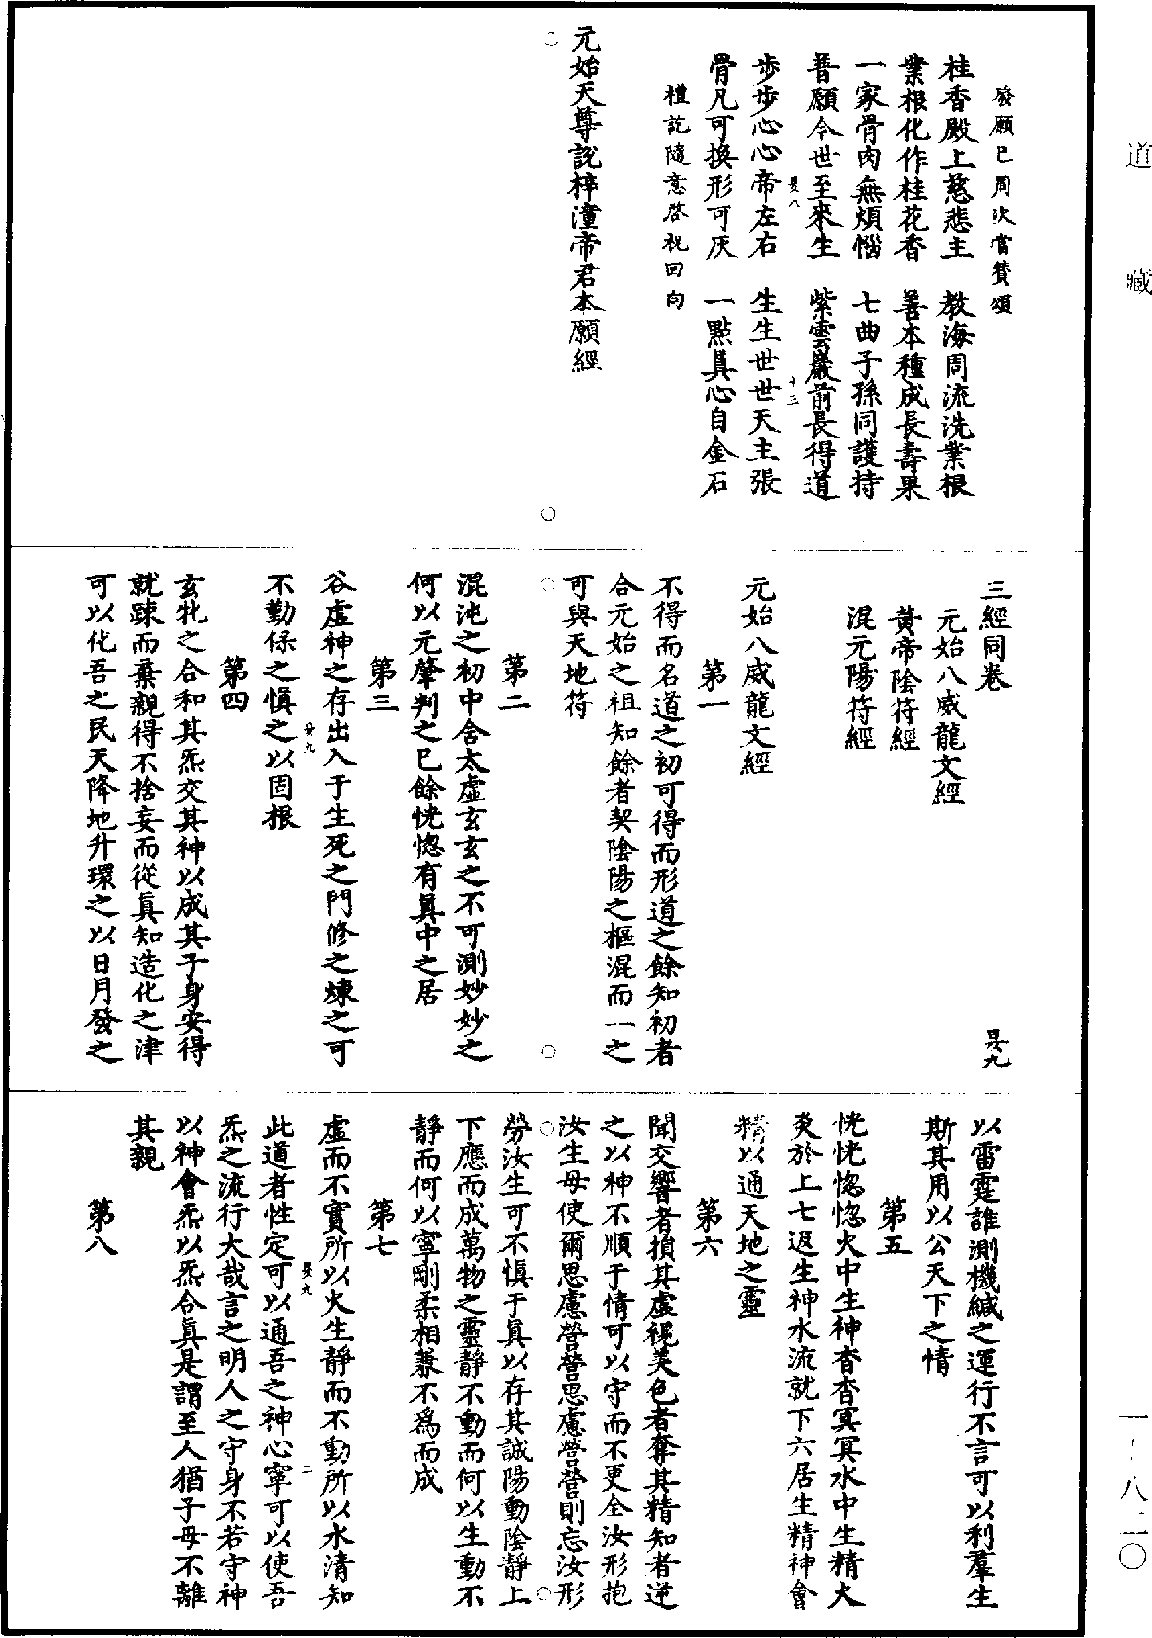 道藏
發願已周次當贊頌
桂香殿上慈悲主　教海周流洗業根
業根化作桂花香　善本種成長壽果
一家骨肉無煩惱　七曲子孫同護持
普願今世至來生　紫雲巖前長得道
步步心心帝左右　生生世世天主張
骨凡可換形可灰　一點真心自金石
禮訖隨意啓祝回向
元始天尊說梓潼帝君本願經
三經同卷　昃九
元始八威龍文經
黃帝陰符經
混元陽符經
元始八威龍文經
第一
不得而名道之初可得而形道之餘知初者
合元始之祖知餘者契陰陽之樞混而一之
可與天地符
第二
混沌之初中含太虛玄玄之不可測妙妙之
何以元肇判之已餘恍惚有真中之居
第三
谷虛神之存出入于生死之門修之煉之可
不勤保之慎之以固根
第四
玄牝之合和其炁交其神以成其子身安得
就踈而棄親得不捨妄而從真知造化之津
可以化吾之民天降地升環之以日月發之
以雷霆誰測機緘之運行不言可以利羣生
斯其用以公天下之情
第五
恍恍惚惚火中生神杳杳冥冥水中生精火
炎於上七返生神水流就下六居生精神會
精以通天地之靈
第六
聞交響者損其虛視美色者奪其精知者逆
之以神不順于情可以守而不更全汝形抱
汝生毋使爾思慮營營思慮營營則忘汝形
勞汝生可不慎于真以存其誠陽動陰靜上
下應而成萬物之靈靜不動而何以生動不
靜而何以寧剛柔相兼不為而成
第七
虛而不實所以火生靜而不動所以水清知
此道者性定可以通吾之神心寧可以使吾
炁之流行大哉言之明人之守身不若守神
以神會炁以炁合真是謂至人猶子母不離
其親
第八
一-八二〇